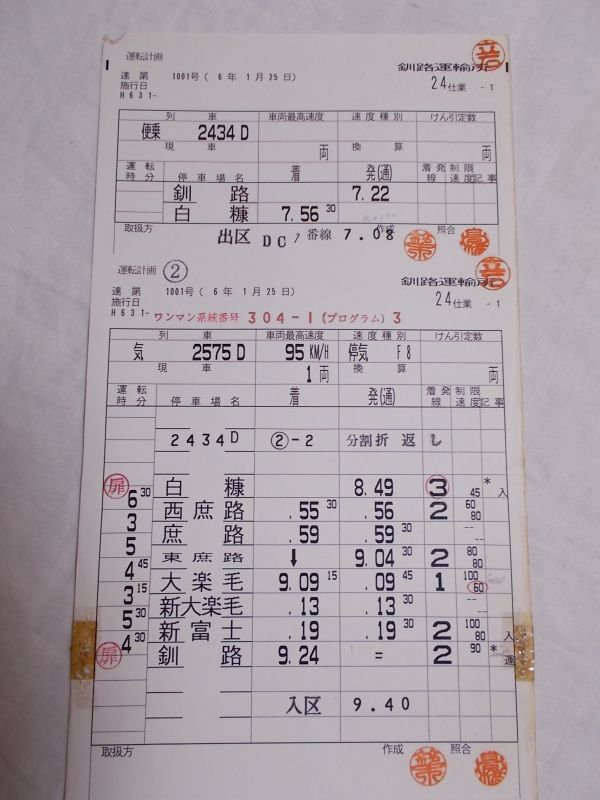 運転計画
釧路運輸所
達 第 1001号( 6 年 1 月 25 日)
24仕業 -1
施行日
H 6 3 1 -
列 車 車両最高速度 速度種別 けん引定数
便乗 2434 D
現 車 両 換 算 両
運 転 時 分 停 車 場 名 着 発(通) 着発線 制限速度 記事
釧 路 7.22
白 糠 7.56 30
取扱方 作成 照合
出区 DC 7 番線 7.08
運転計画 ②
釧路運輸所
達 第 1001号( 6 年 1 月 25 日)
24仕業 -1
施行日
H 6 3 1 - ワンマン系統番号 304-1(プログラム)3
列 車 車両最高速度 速度種別 けん引定数
気 2575 D 95 KM/H 停気 F 8
現 車 1 両 換 算 両
運 転 時 分 停 車 場 名 着 発(通) 着発線 制限速度 記事
2434D ②-2 分割折 返 し
扉 白 糠 8.49 3 45 * 入
6 30
西庶路 .55 30 .56 2 60 80
3
庶 路 .59 .59 30 -- --
5
東庶路 ↓ 9.04 30 2 80 80
4 45
大楽毛 9.09 15 .09 45 1 100 60
3 15
新大楽毛 .13 .13 30 -- --
5 30
新富士 .19 .19 30 2 100 80 入
4 30
扉 釧 路 9.24 = 2 90 * 運
入区 9.40
取扱方 作成 照合